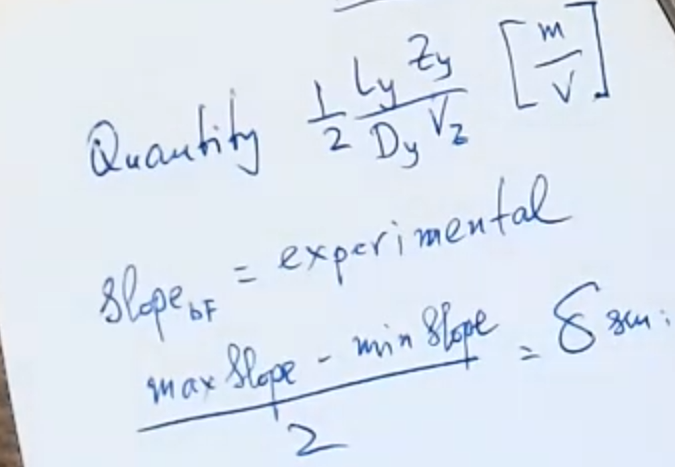 Quantity 1/2 Ly Zy / Dy Vz [m/V]
Slope BF = experimental
max Slope - min Slope / 2 = δ